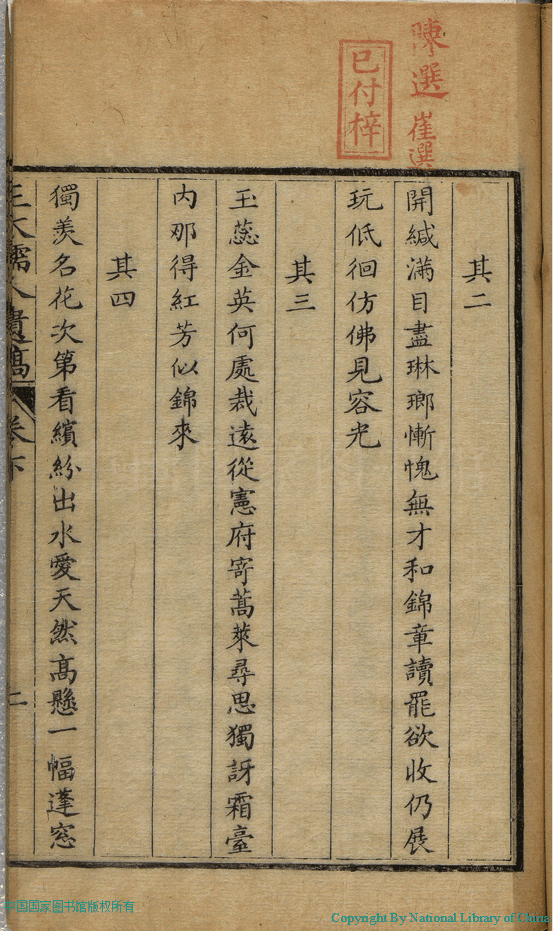 陳選
崔選
已付梓
其二
開緘滿目盡琳瑯慚愧無才和錦章讀罷欲收仍展
玩低徊仿佛見容光
其三
玉蕊金英何處栽遠從憲府寄蒿萊尋思獨訝霜臺
內那得紅芳似錦來
其四
獨羨名花次第看繽紛出水愛天然高懸一幅蓬窓
遺稿 卷下
二
中国国家图书馆版权所有
Copyright By National Library of China